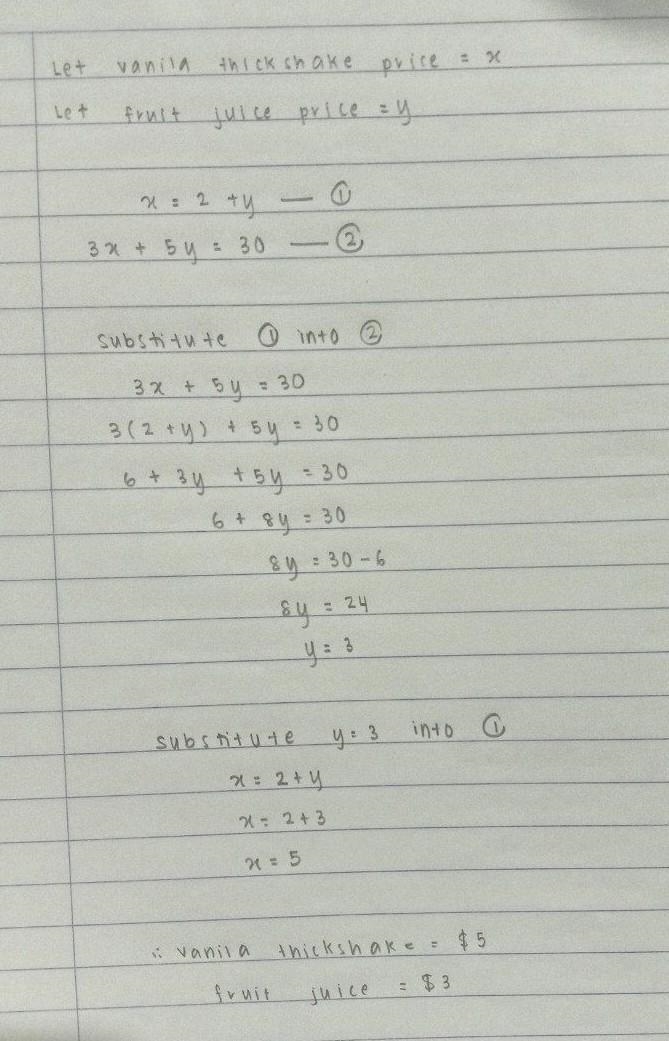 Let vanila thickshake price = x
Let fruit juice price = y
x = 2 + y — ①
3x + 5y = 30 — ②
substitute ① into ②
3x + 5y = 30
3(2 + y) + 5y = 30
6 + 3y + 5y = 30
6 + 8y = 30
8y = 30 - 6
8y = 24
y = 3
substitute y = 3 into ①
x = 2 + y
x = 2 + 3
x = 5
∴ vanila thickshake = $5
fruit juice = $3